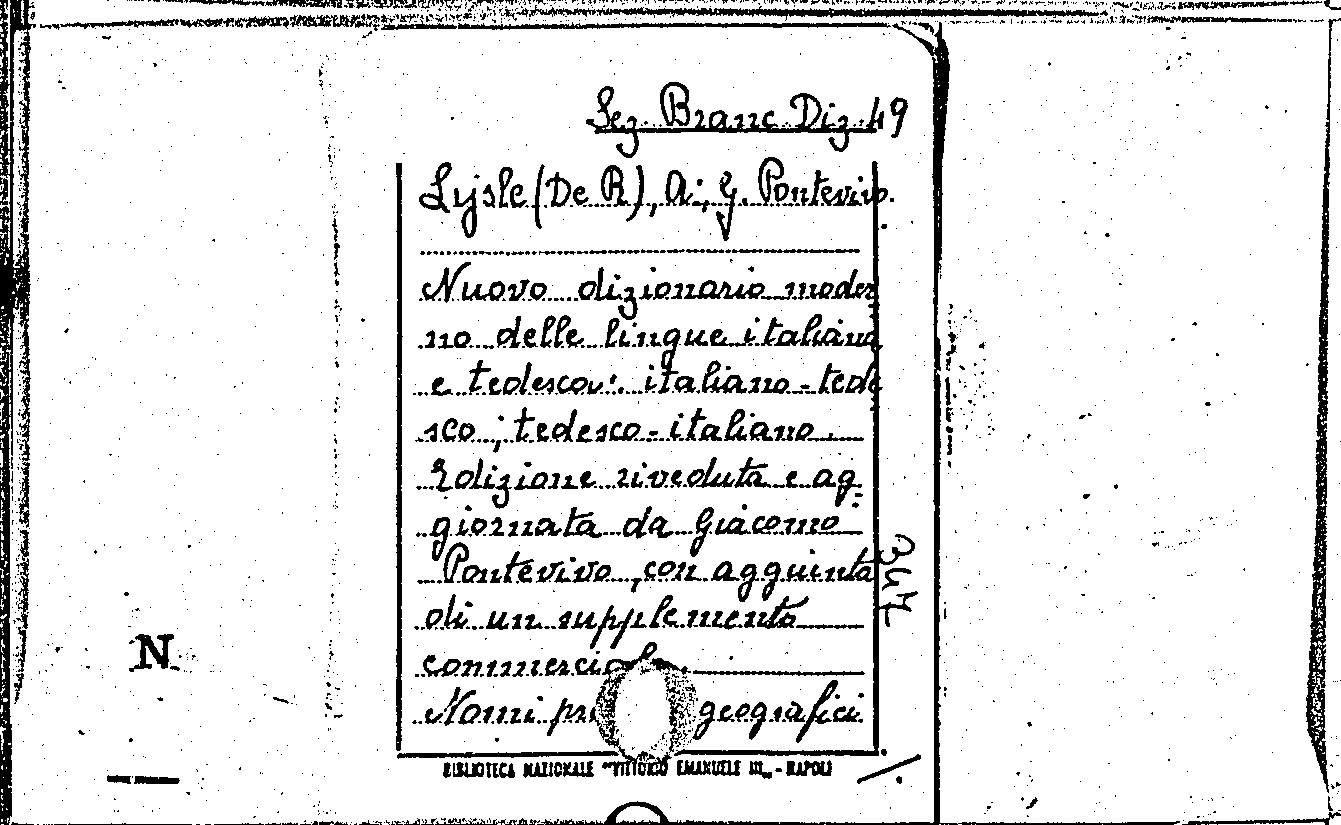 Sez. Branc. Diz. 49
Lysle (De R), A.; G. Pontevivo.
Nuovo dizionario moder
no delle lingue italiana
e tedesca: italiano-tede
sco; tedesco-italiano.
Edizione riveduta e ag-
giornata da Giacomo
Pontevivo, con agguinta
di un supplemento
commerciale.
Nomi geografici
347
N
BIBLIOTECA NAZIONALE "VITTORIO EMANUELE III" - NAPOLI